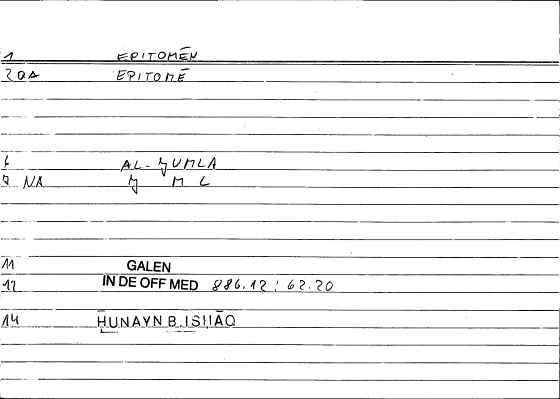 1 EPITOMĒN
2 QA EPITOMĒ
6 AL-ǦUMLA
7 NA Ǧ M L
11 GALEN
12 IN DE OFF MED 886.12 : 62.20
14 ḤUNAYN B. ISḤĀQ